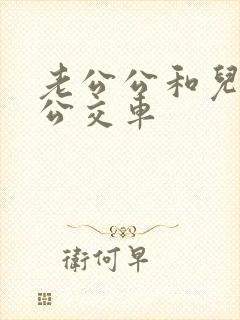 老公公和兒
公交車
衛何早